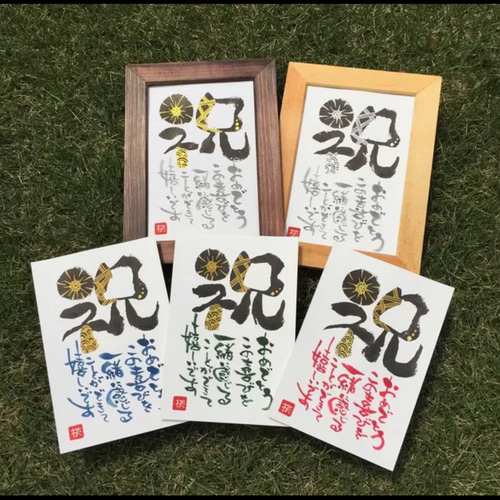 祝
おめでとう
一緒に感じる
ことができて
嬉しいです
祝
おめでとう
一緒に感じる
ことができて
嬉しいです
祝
おめでとう
一緒に感じる
ことができて
嬉しいです
祝
おめでとう
一緒に感じる
ことができて
嬉しいです
祝
おめでとう
一緒に感じる
ことができて
嬉しいです